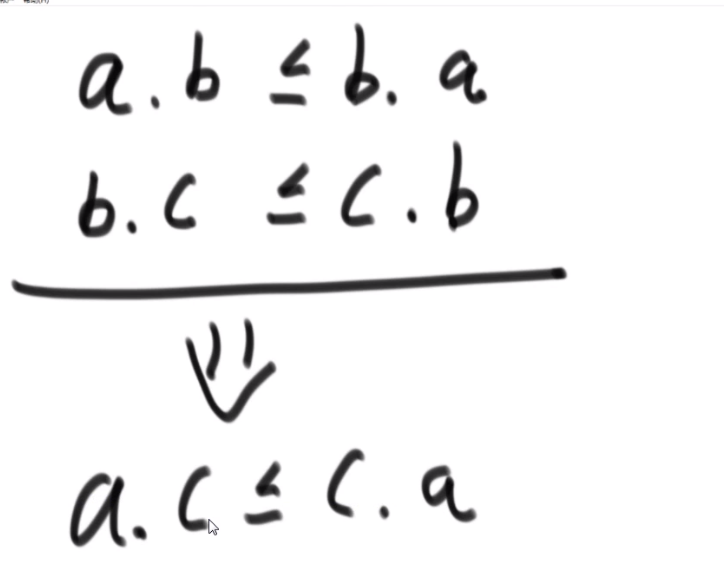 a.b ≤ b.a
b.c ≤ c.b
a.c ≤ c.a